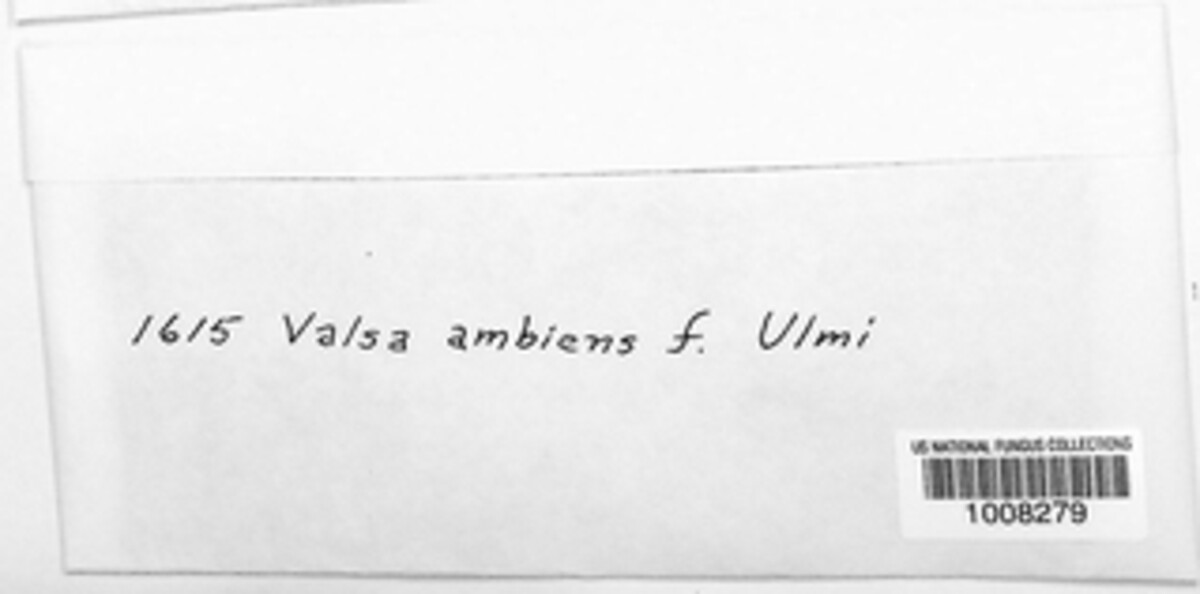 1615 Valsa ambiens f. Ulmi
US NATIONAL FUNGUS COLLECTIONS
1008279